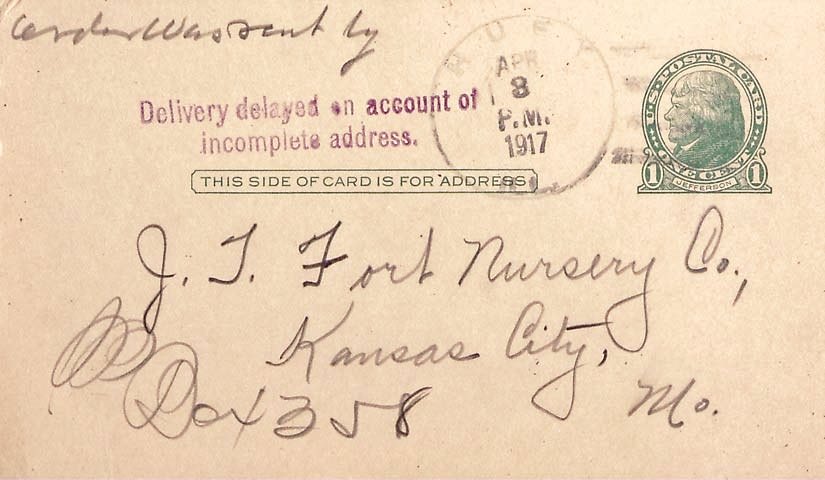 order was sent by
APR
8
P.M.
1917
Delivery delayed on account of
incomplete address.
THIS SIDE OF CARD IS FOR ADDRESS
U.S. POSTAL CARD
ONE CENT
1 JEFFERSON 1
J. T. Fort Nursery Co.,
Kansas City,
Mo.
Box 358